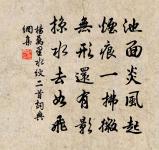 池面炎風起
煙痕一拂微
無形還有影
掠水去如飛
楊萬里水紋二首詞典
網集